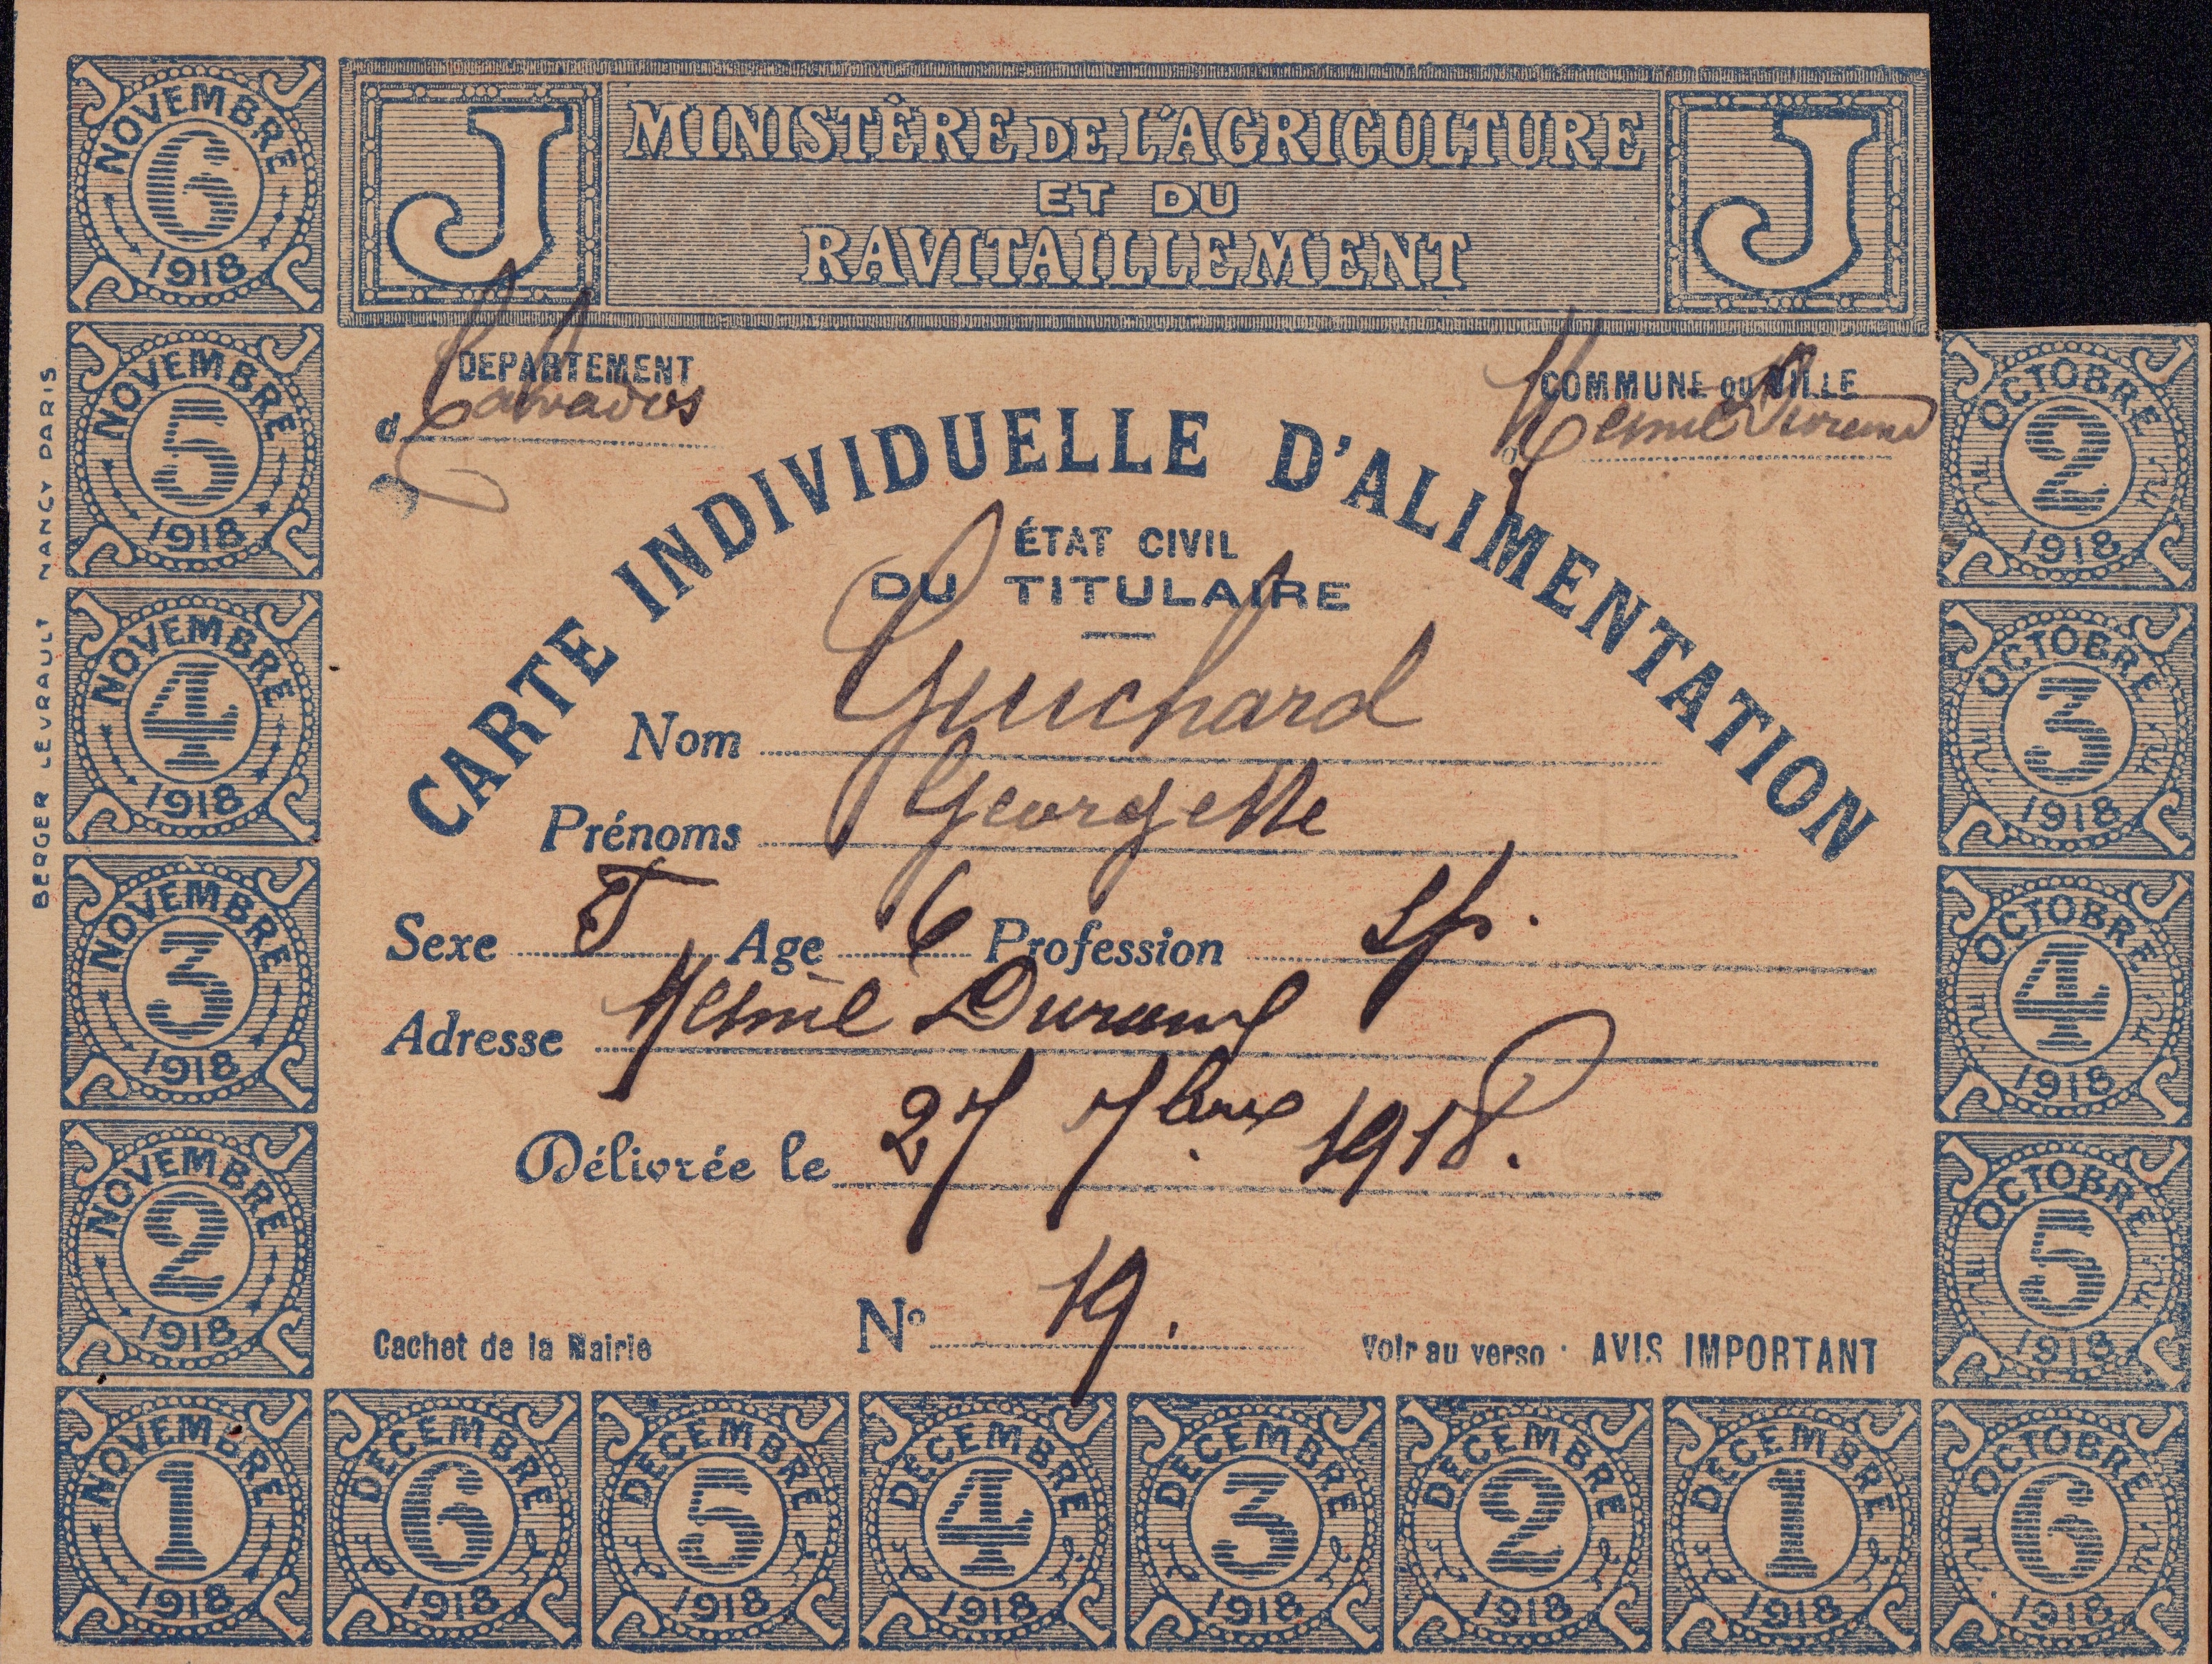 J MINISTÈRE DE L'AGRICULTURE J
ET DU
RAVITAILLEMENT
DEPARTEMENT
d Calvados
COMMUNE OU VILLE
d Mesnil Durand
CARTE INDIVIDUELLE D'ALIMENTATION
ÉTAT CIVIL
DU TITULAIRE
Nom Guichard
Prénoms Georgette
Sexe F Age 6 Profession sp.
Adresse Mesnil Durand
Délivrée le 27 7bre 1918.
Nº 19.
Cachet de la Mairie
Voir au verso : AVIS IMPORTANT
BERGER LEVRAULT NANCY PARIS
NOVEMBRE 6 1918
NOVEMBRE 5 1918
NOVEMBRE 4 1918
NOVEMBRE 3 1918
NOVEMBRE 2 1918
NOVEMBRE 1 1918
DECEMBRE 6 1918
DECEMBRE 5 1918
DECEMBRE 4 1918
DECEMBRE 3 1918
DECEMBRE 2 1918
DECEMBRE 1 1918
OCTOBRE 6 1918
OCTOBRE 5 1918
OCTOBRE 4 1918
OCTOBRE 3 1918
OCTOBRE 2 1918